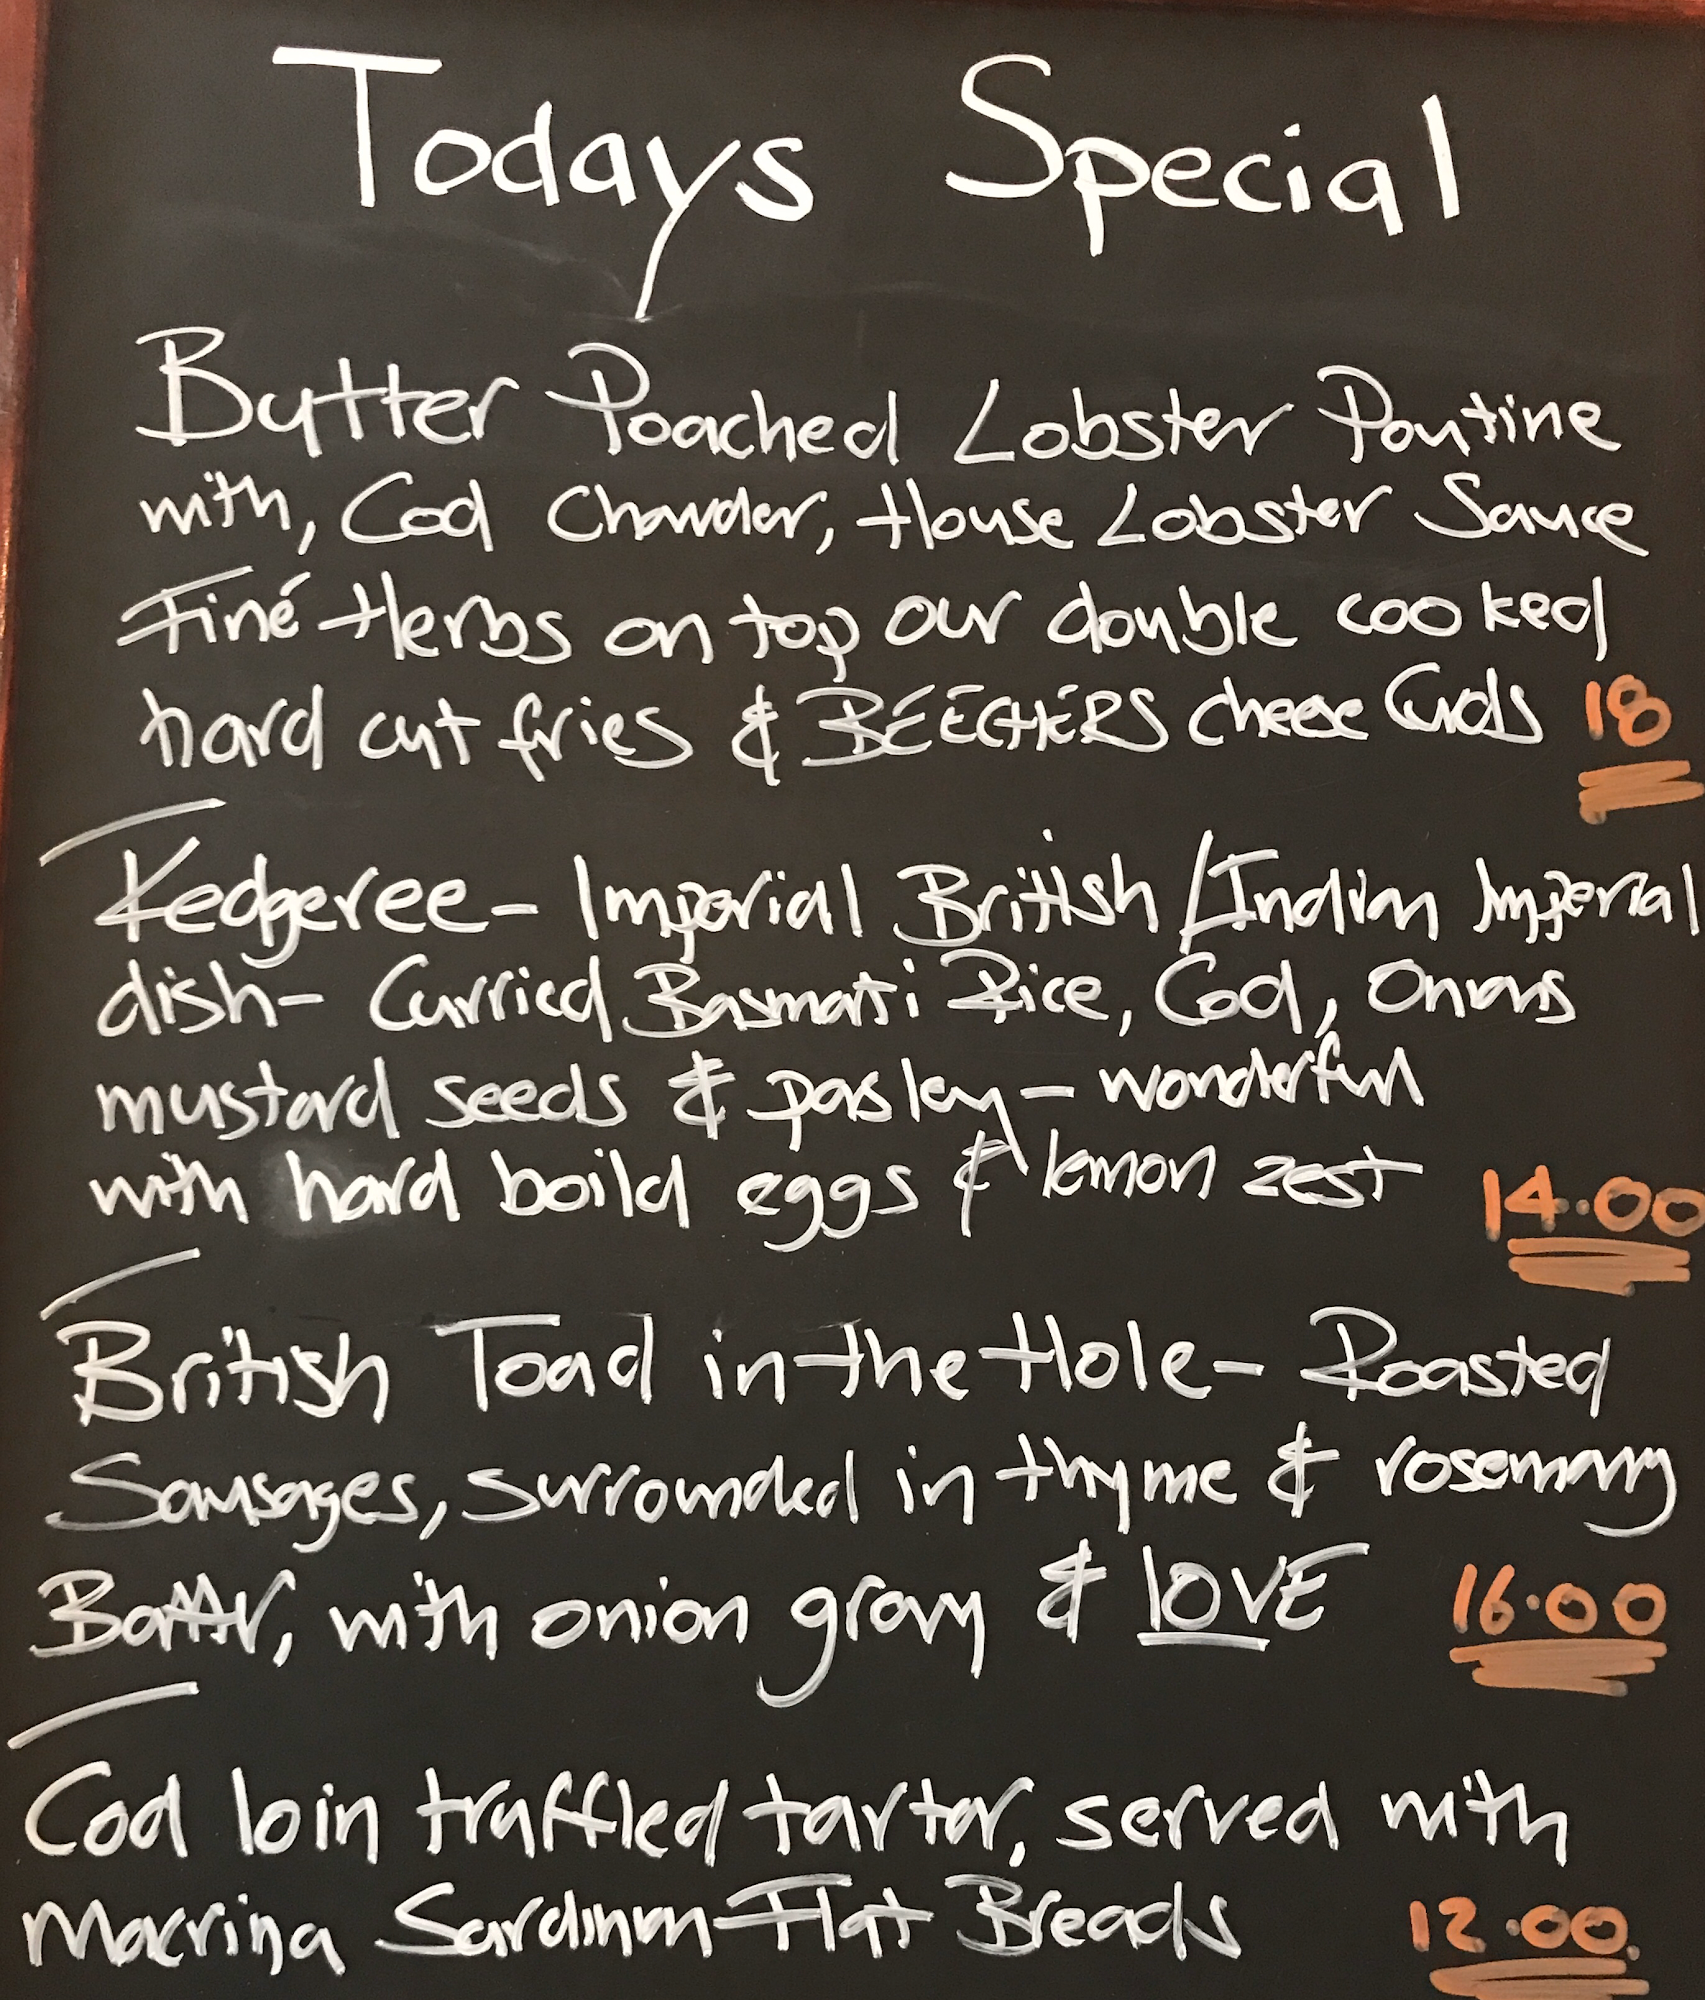 Todays Special
Butter Poached Lobster Poutine
with, Cod Chowder, House Lobster Sauce
Finé Herbs on top our double cooked
hard cut fries & BEECHERS cheese Curds 18
Kedgeree - Imperial British / Indian Imperial
dish - Curried Basmati Rice, Cod, Onions
mustard seeds & parsley - wonderful
with hard boild eggs & lemon zest 14.00
British Toad in-the Hole - Roasted
Sausages, surrounded in thyme & rosemary
Batter, with onion gravy & LOVE 16.00
Cod loin truffled tartar, served with
Macrina Sardinian Flat Breads 12.00